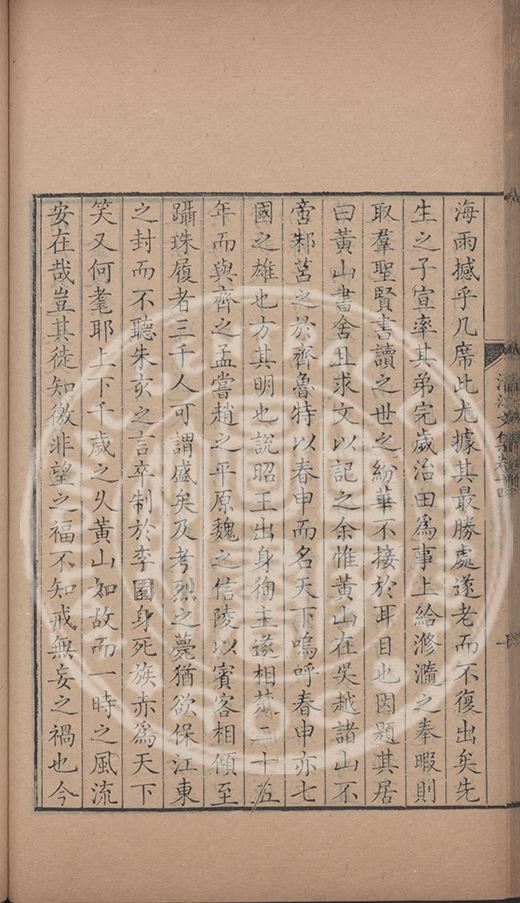 海雨撼乎几席此尤據其最勝處遂老而不復出矣先
生之子宣率其弟完歲治田爲事上給滫瀡之奉暇則
取羣聖賢書讀之世之紛華不接於耳目也因題其居
曰黃山書舍且求文以記之余惟黃山在吳越諸山不
啻邾莒之於齊魯特以春申而名天下嗚呼春申亦七
國之雄也方其明也說昭王出身徇主遂相荊二十五
年而與齊之孟嘗趙之平原魏之信陵以賓客相傾至
躡珠履者三千人可謂盛矣及考烈之薨猶欲保江東
之封而不聽朱亥之言卒制於李園身死族赤爲天下
笑又何耄耶上下千歲之久黃山如故而一時之風流
安在哉豈其徒知徼非望之福不知戒無妄之禍也今
清江文集卷